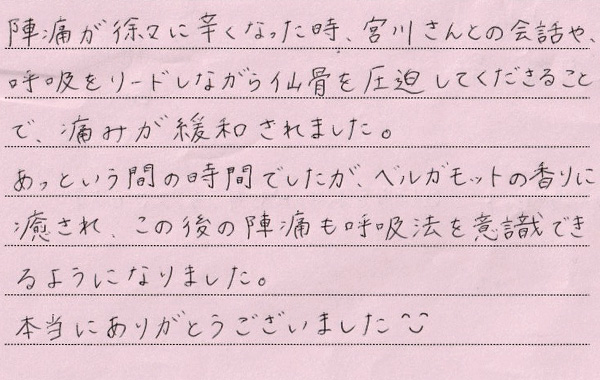 陣痛が徐々に辛くなった時、宮川さんとの会話や、
呼吸をリードしながら仙骨を圧迫してくださること
で、痛みが緩和されました。
あっという間の時間でしたが、ベルガモットの香りに
癒され、この後の陣痛も呼吸法を意識でき
るようになりました。
本当にありがとうございました